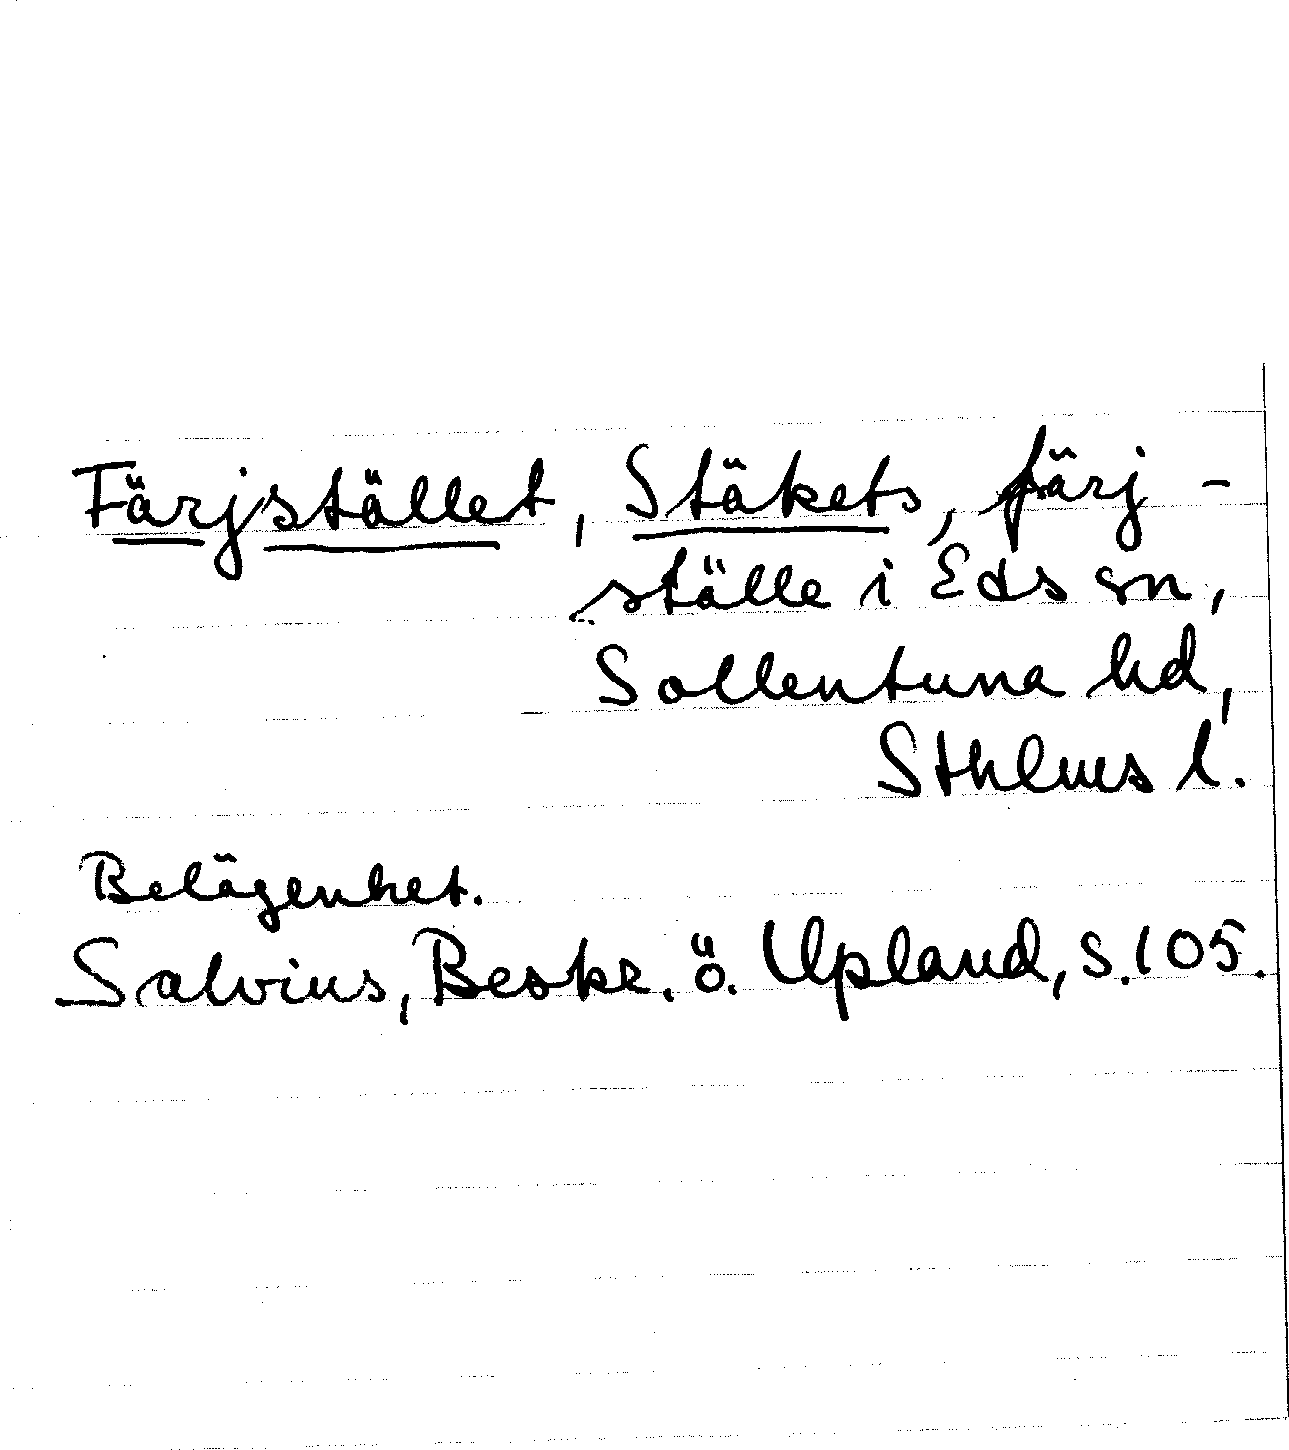 Färjstället, Stäkets, färj-
ställe i Eds sn,
Sollentuna hd,
Sthlms l.
Belägenhet.
Salvius, Beskr. ö. Upland, s. 105.